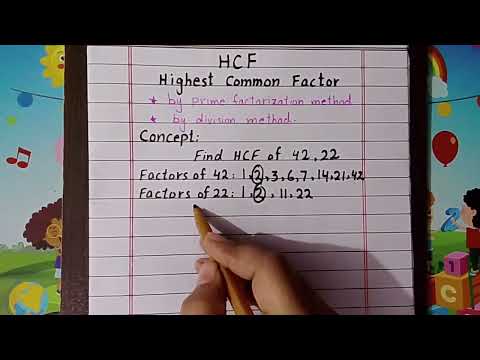 HCF
Highest Common Factor
★ by prime factorization method
★ by division method.
Concept:
Find HCF of 42, 22
Factors of 42: 1, 2, 3, 6, 7, 14, 21, 42
Factors of 22: 1, 2, 11, 22
1
C